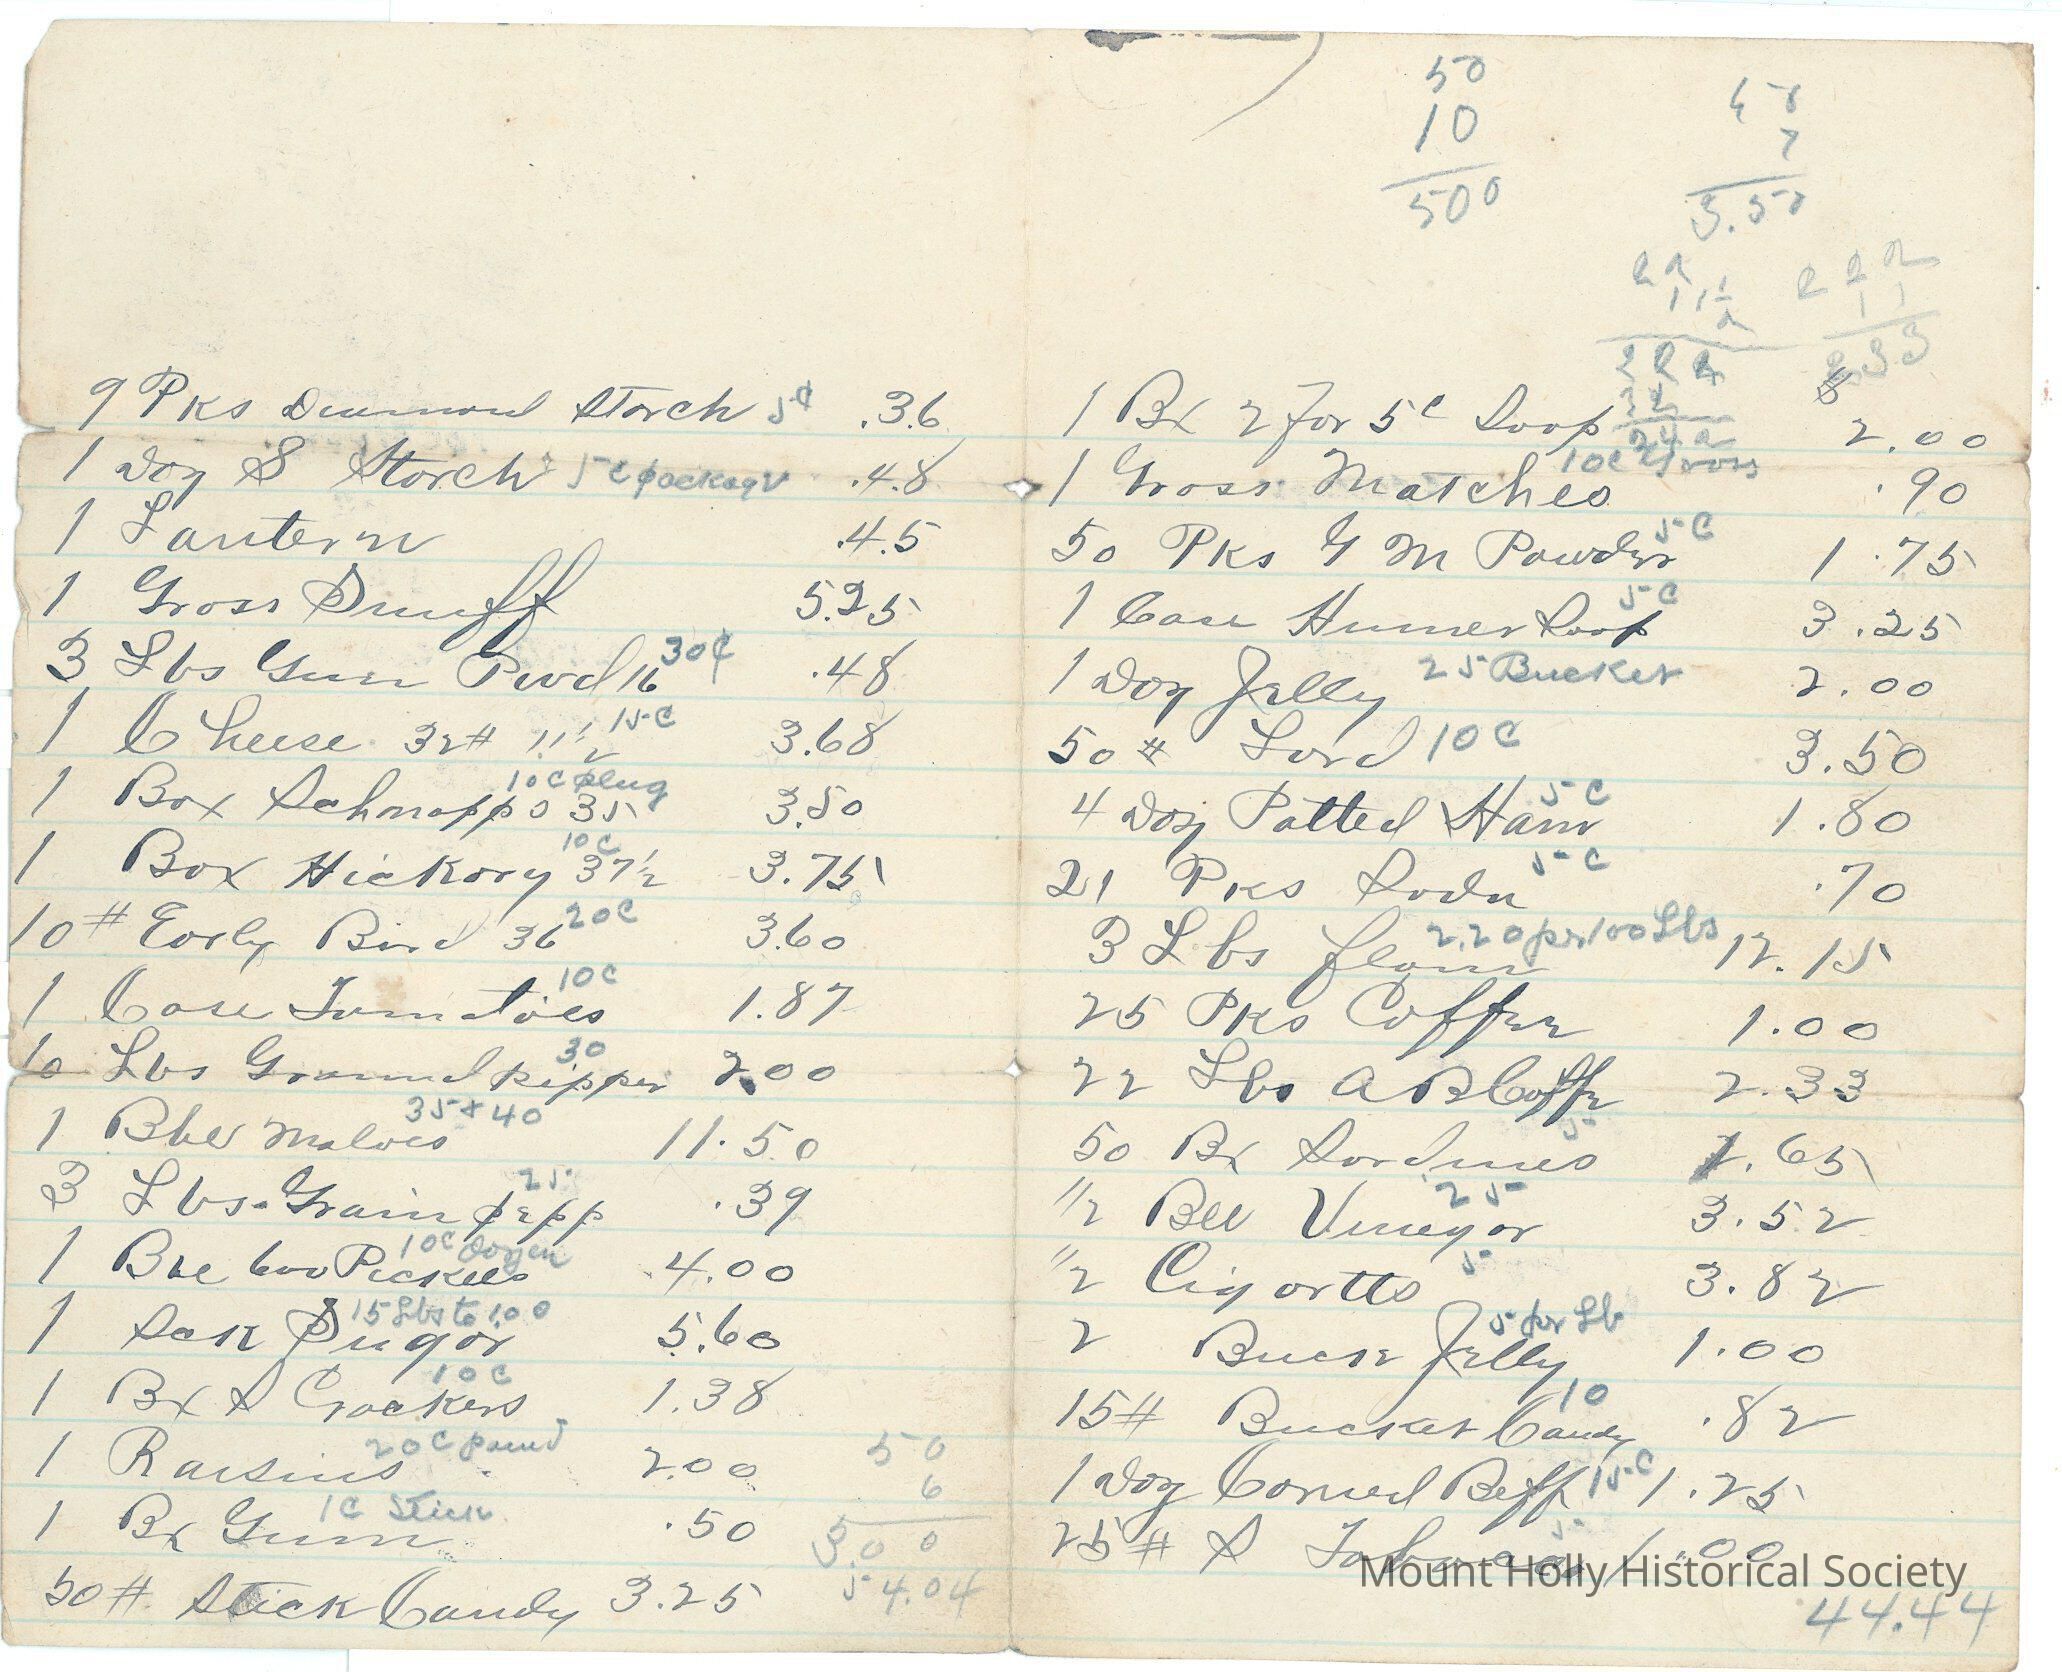 9 Pks Diamond Storch 5¢ .36
1 Doz S Storch 5¢ package .48
1 Lantern .45
1 Gross Snuff 5.25
3 Lbs Gun Pwd 16 30¢ .48
1 Cheese 32# 11½ 15¢ 3.68
1 Box Schnapps 35 10¢ plug 3.50
1 Box Hickory 37½ 10¢ 3.75
10# Early Bird 36 20¢ 3.60
1 Case Tomatoes 10¢ 1.87
10 Lbs Ground pepper 30 2.00
1 Bbl Malases 35 + 40 11.50
3 Lbs. Grain pepp 25 .39
1 Bbl 600 Pickels 10¢ dozen 4.00
1 Sack Sugar 15 Lbs to 1.00 5.60
1 Bx S Crackers 10¢ 1.38
1 Raisins 20¢ pound 2.00
1 Bx Gum 1¢ Stick .50
50# Stick Candy 3.25
50
6
300
54.04
50
10
500
50
7
3.50
22
11½
2
222
22
242
222
11
233
1 Bx 2 for 5¢ Soap $ 2.00
1 Gross Matches 10¢ .90
50 Pks G M Powder 5¢ 1.75
1 Case Humer Soap 5¢ 3.25
1 Doz Jelly 25 Bucket 2.00
50# Lard 10¢ 3.50
4 Doz Potted Ham 5¢ 1.80
21 Pks Soda 5¢ .70
3 Lbs flour 2.20 per 100 Lbs 12.15
25 Pks Coffee 1.00
22 Lbs A B Coffe 2.33
50 Bx Sardines 5 1.65
1/2 Bbl Vinegor 25 3.52
1/2 Cigartts 5 3.82
2 Buck Jelly 5 per Lb 1.00
15# Bucket Candy 10 .82
1 Doz Corned Beff 15¢ 1.25
25# S 5 1.00
Mount Holly Historical Society
44.44